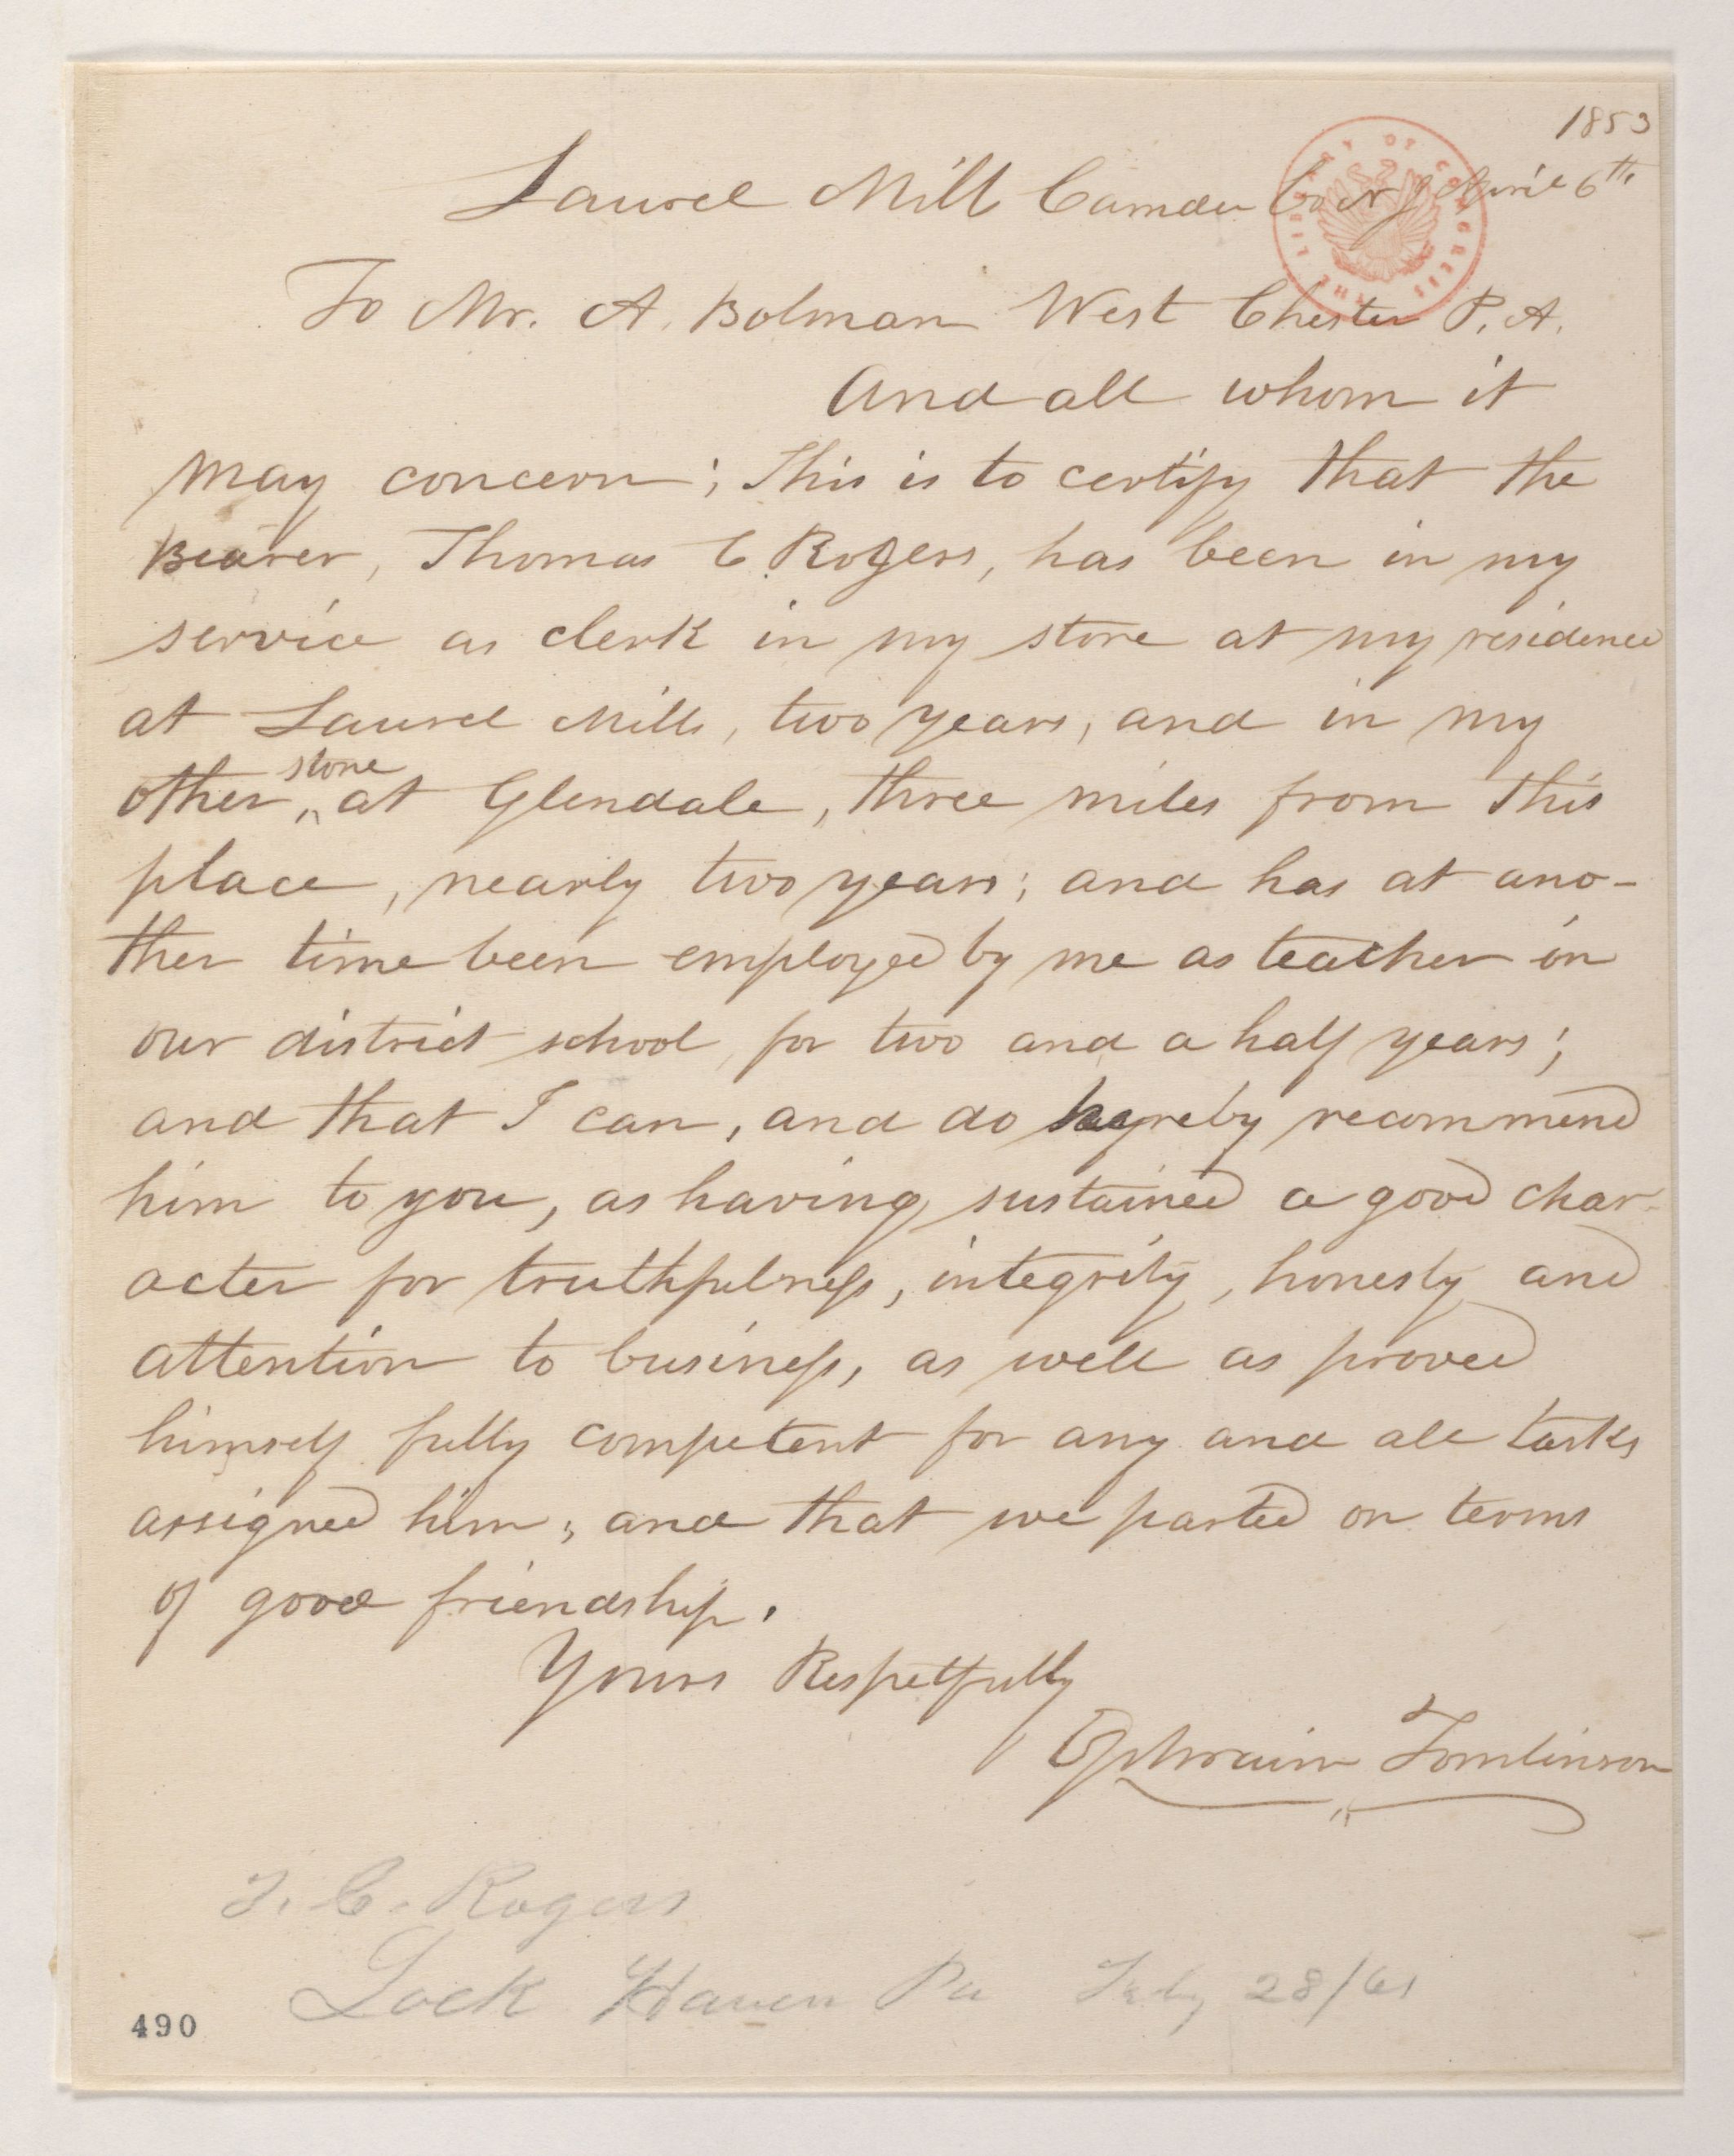 1853
Laurel Mill Camden Co NJ April 6th
To Mr. A. Bolman West Chester P. A.
And all whom it
may concern; This is to certify that the
Bearer, Thomas C. Rogers, has been in my
service as clerk in my store at my residence
at Laurel Mills, two years, and in my
store
other, ^ at Glendale, three miles from this
place, nearly two years; and has at ano-
ther time been employed by me as teacher in
our district school for two and a half years;
and that I can, and do hereby recommend
him to you, as having sustained a good char-
acter for truthfulness, integrity, honesty and
attention to business, as well as proved
himself fully competent for any and all tasks
assigned him; and that we parted on terms
of good friendship.
Yours Respetfully
Ephraim Tomlinson
T. C. Rogers
Lock Haven Pa 28/61
490
THE LIBRARY OF CONGRESS